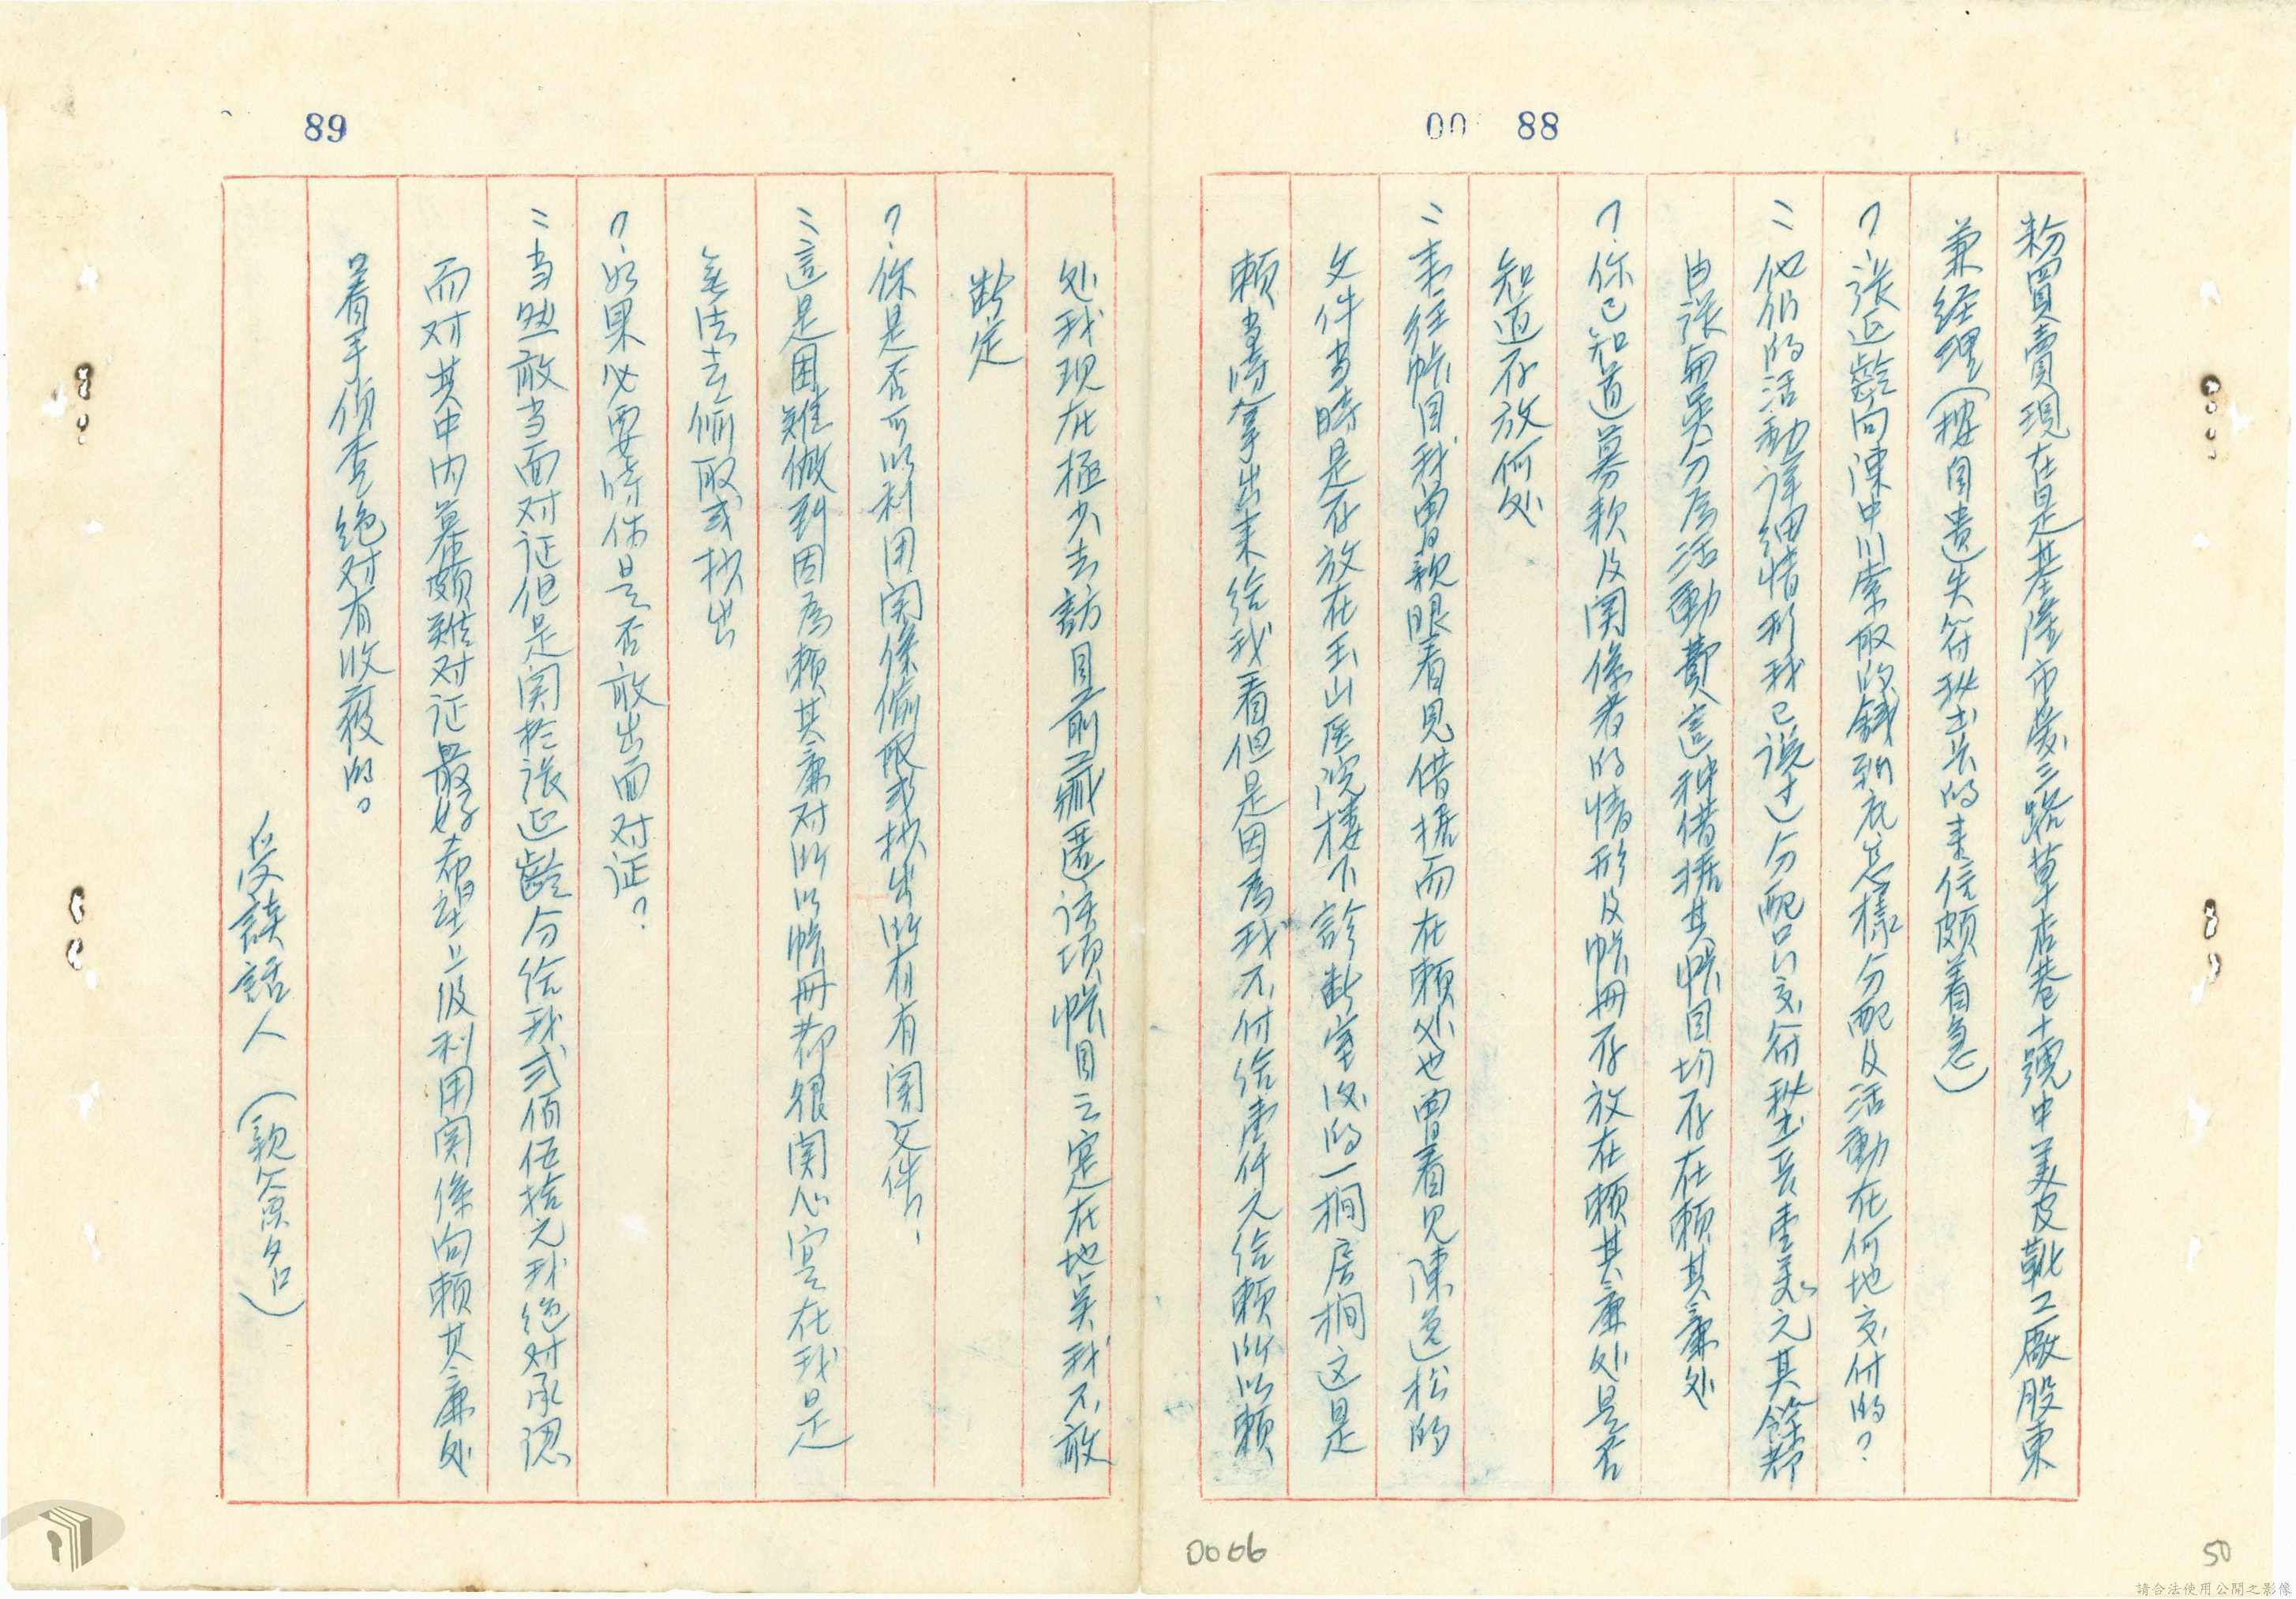 00 88
粉買賣現在是基隆市愛三路草店巷十號中美皮靴工廠股東
兼經理(按自遺失符秘书长的来信頗着急)
?張延齡向陳中川索取的錢到底怎樣分配及活動在何地交付的?
:他们的活動详细情形我已说过分配只交符秘书長壹美元其餘都
由張与吳分为活動費這种借据其帐目均存在賴其廉处
?你已知道募款及関係者的情形及帐冊存放在賴其廉处是否
知道存放何处
:来往帐目我曾親眼看見借据而在賴处也曾看见陳逸松的
文件当時是存放在玉山医院樓下診断室後的一榈房榈这是
賴当時拿出来给我看但是因為我不付给壹仟元给賴所以賴
0066
50
89
处我现在極少去訪目前藏匿该项帐目云定在地吴我不敢
断定
?你是否可以利用関係偷取或抄出所有有関文件?
:這是困難做到因為賴其廉对所以帐冊都很関心宴在我是
無法去偷取或抄出
?如果必要時你是否敢出面对证?
:当然敢当面对证但是関於張延齡分给我弍佰伍拾元我绝对承認
而对其中内幕頗難对证最好希望上级利用関係向賴其廉处
着手偵查绝对有收获的。
受談話人(親簽名)
請合法使用公開之影像